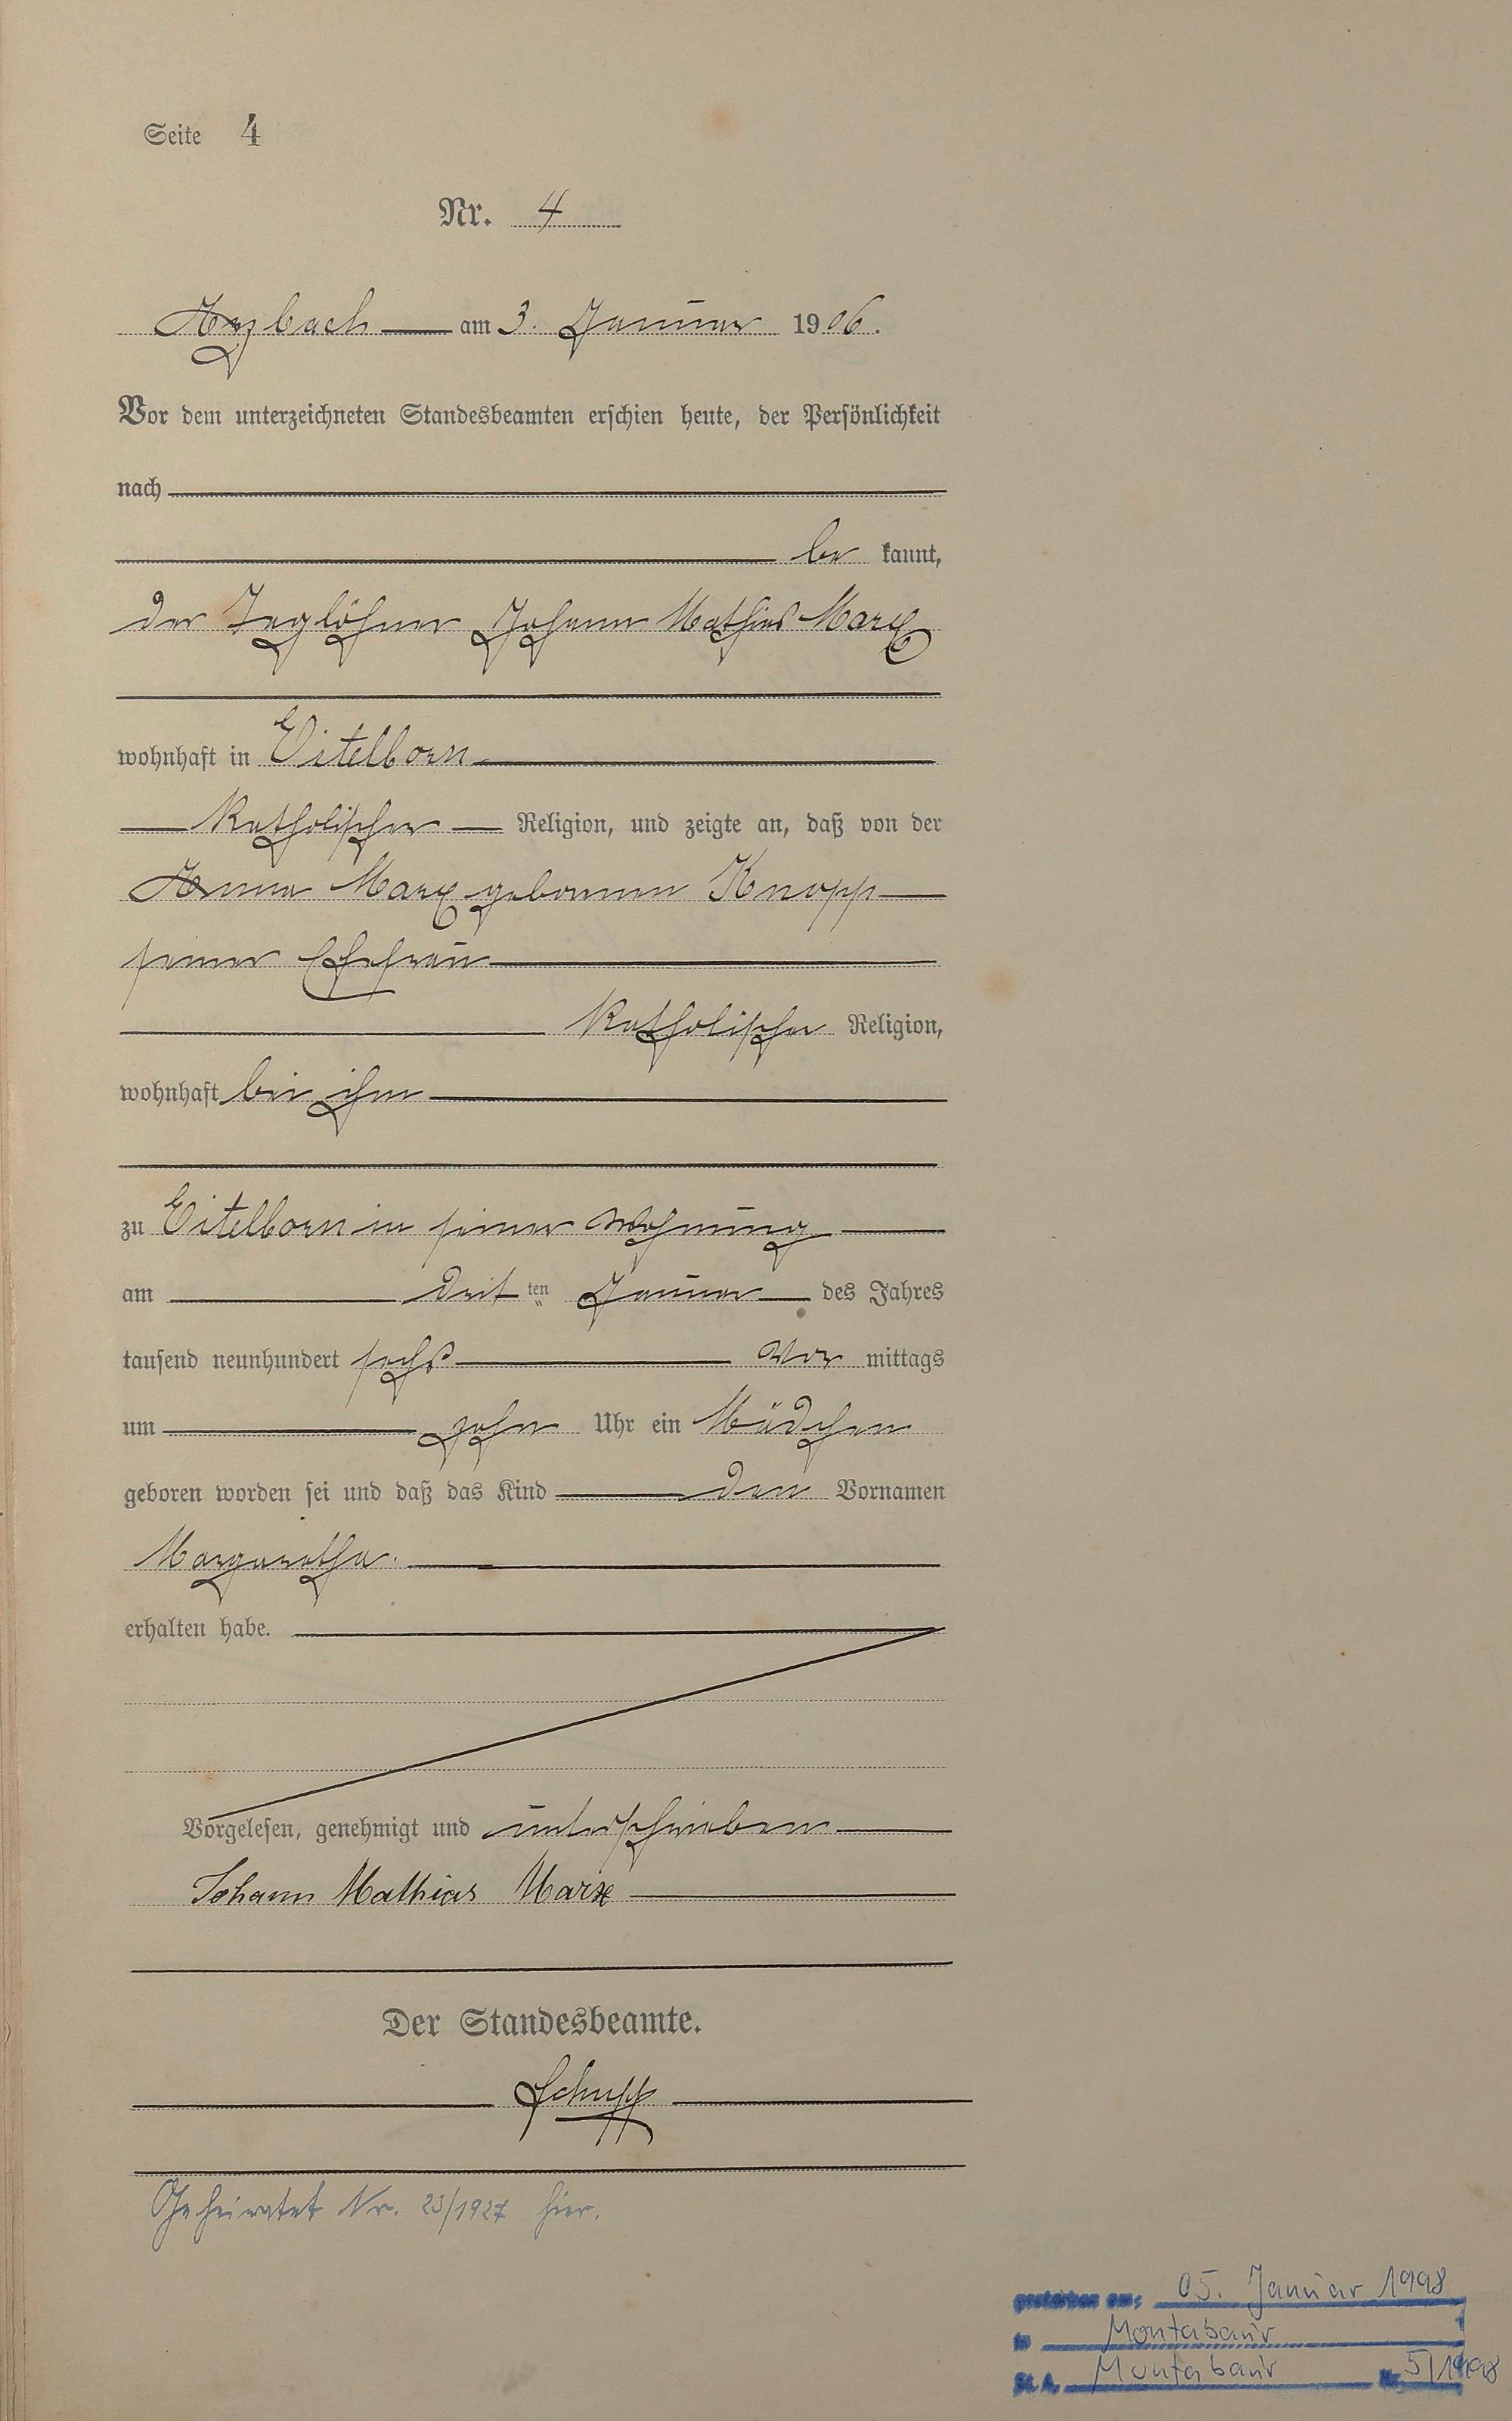 Seite 4
Nr. 4
Arzbach am 3. Januar 1906.
Vor dem unterzeichneten Standesbeamten erschien heute, der Persönlichkeit
nach
be kannt,
der Taglöhner Johann Mathias Marx
wohnhaft in Eitelborn
katholischer Religion, und zeigte an, daß von der
Anna Marx geborenen Knopp
seiner Ehefrau
katholischer Religion,
wohnhaft bei ihm
zu Eitelborn in seiner Wohnung
am drit ten Januar des Jahres
tausend neunhundert sechs Vor mittags
um zehn Uhr ein Mädchen
geboren worden sei und daß das Kind den Vornamen
Margaretha.
erhalten habe.
Vorgelesen, genehmigt und unterschrieben
Johann Mathias Marx
Der Standesbeamte.
Schupp
Geheiratet Nr. 23/1927 hier.
gestorben am: 05. Januar 1998
in Montabaur
St. A. Montabaur Nr. 5/1998